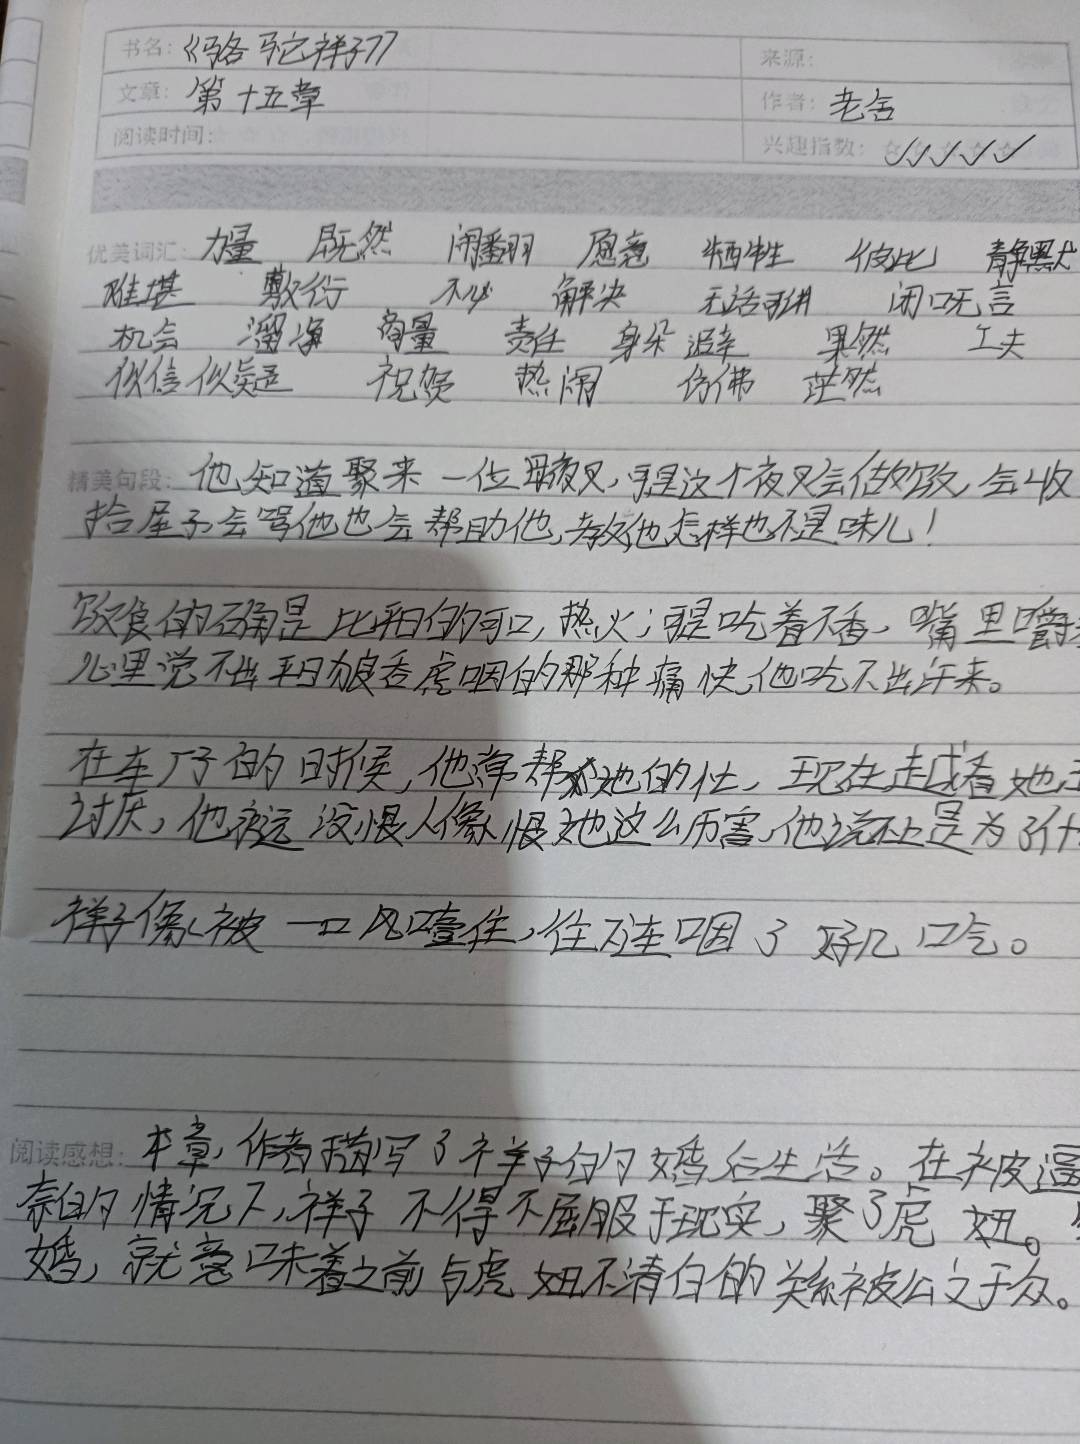 书名：《骆驼祥子》
来源：
文章：第十五章
作者：老舍
阅读时间：
兴趣指数：☆☆☆☆☆ ✓✓✓✓✓
优美词汇：力量 既然 闹翻 愿意 牺牲 彼此 静默
难堪 敷衍 不必 解决 无话可讲 闭口无言
机会 溜净 商量 责任 身躲 避 果然 工夫
似信似疑 祝贺 热闹 仿佛 茫然
精美句段：他知道聚来一位母夜叉，可是这个夜叉会做饭，会收
拾屋子会骂他也会帮助他，教他怎样也不是味儿！
饭食的确是比平日的可口，热火；可是吃着不香，嘴里嚼
心里觉不出平日狼吞虎咽的那种痛快，他吃不出汗来。
在车厂子的时候，他常帮她的忙，现在越看她
讨厌，他永远没恨人像恨她这么厉害，他说不上是为了什
祥子像被一口风噎住，往下连咽了好几口气。
阅读感想：本章，作者描写了祥子的婚后生活。在被逼
奈的情况下，祥子不得不屈服于现实，聚了虎妞。
婚，就意味着之前与虎妞不清白的关系被公之于众。